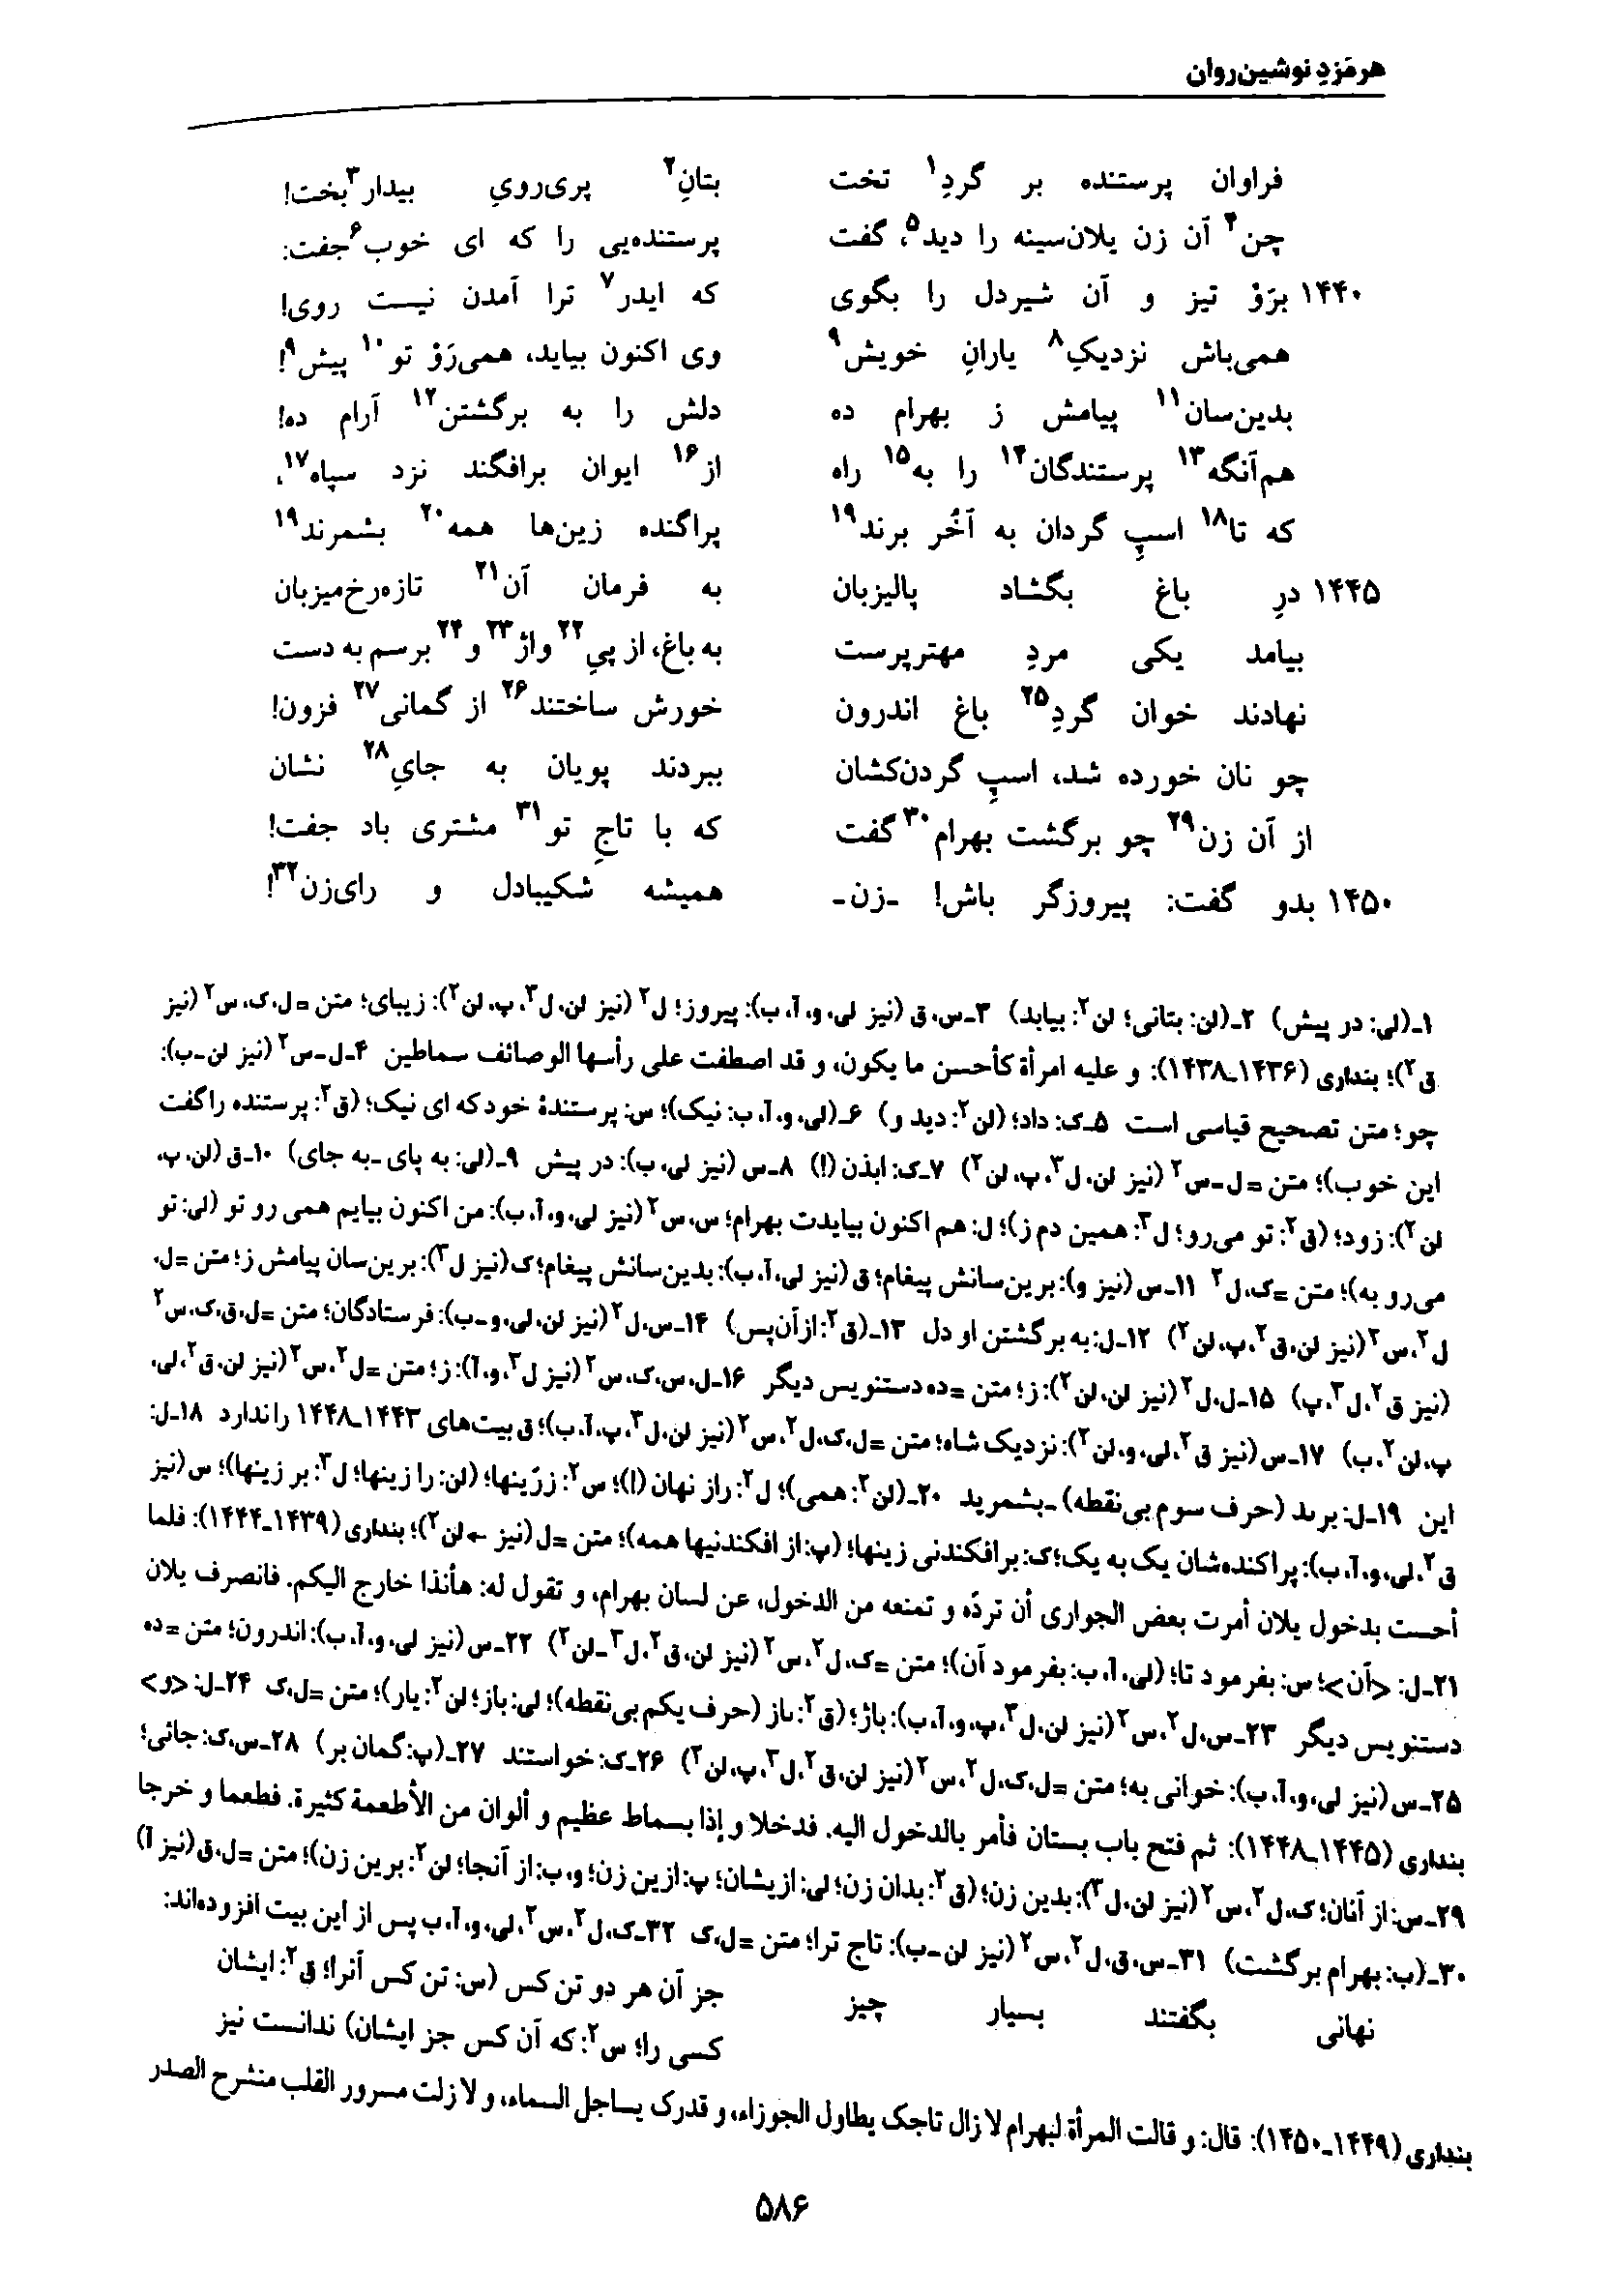 هرمَزدِ نوشین‌روان
فراوان پرستنده بر گردِ۱ تخت بتانِ۲ پری‌رویِ بیدار۳بخت!
چن۴ آن زن یلان‌سینه را دید۵، گفت پرستنده‌یی را که ای خوب۶جفت:
۱۴۴۰ برَوْ تیز و آن شیردل را بگوی که ایدر۷ ترا آمدن نیست روی!
همی‌باش نزدیکِ۸ یارانِ خویش۹ وی اکنون بیاید، همی‌رَوْ تو۱۰ پیش۹!
بدین‌سان۱۱ پیامش ز بهرام ده دلش را به برگشتن۱۲ آرام ده!
هم‌آنگه۱۳ پرستندگان۱۴ را به۱۵ راه از۱۶ ایوان برافگند نزد سپاه۱۷،
که تا۱۸ اسپِ گردان به آخُر برند۱۹ پراگنده زین‌ها همه۲۰ بشمرند۱۹
۱۴۴۵ درِ باغ بگشاد پالیزبان به فرمان آن۲۱ تازه‌رخ‌میزبان
بیامد یکی مردِ مهترپرست به باغ، از پیِ۲۲ واژ۲۳ و۲۴ برسم به دست
نهادند خوان گردِ۲۵ باغ اندرون خورش ساختند۲۶ از گمانی۲۷ فزون!
چو نان خورده شد، اسپِ گردن‌کشان ببردند پویان به جایِ۲۸ نشان
از آن زن۲۹ چو برگشت بهرام۳۰ گفت که با تاجِ تو۳۱ مشتری باد جفت!
۱۴۵۰ بدو گفت: پیروزگر باش! ـ‌زن‌ـ همیشه شکیبادل و رای‌زن۳۲!
۱ـ(لی: در پیش) ۲ـ(لن: بتانی؛ لن۲: بیابد) ۳ـس، ق (نیز لی، و، آ، ب): پیروز؛ ل۲ (نیز لن، ل۳، پ، لن۲): زیبای؛ متن = ل، ک، س۲ (نیز
ق۲)؛ بنداری (۱۴۳۶ـ۱۴۳۸): و علیه امرأة کأحسن ما یکون، و قد اصطفت علی رأسها الوصائف سماطین ۴ـل-س۲ (نیز لن-ب):
چو؛ متن تصحیح قیاسی است ۵ـک: داد؛ (لن۲: دید و) ۶ـ(لی، و، آ، ب: نیک)؛ س: پرستندهٔ خود که ای نیک؛ (ق۲: پرستنده را گفت
این خوب)؛ متن = ل-س۲ (نیز لن، ل۳، پ، لن۲) ۷ـک: ابذن (!) ۸ـس (نیز لی، ب): در پیش ۹ـ(لی: به پای -به جای) ۱۰ـق (لن، پ،
لن۲): زود؛ (ق۲: تو می‌رو؛ ل۳: همین دم ز)؛ ل: هم اکنون بیایدت بهرام؛ س، س۲ (نیز لی، و، آ، ب): من اکنون بیایم همی رو تو (لی: تو
می‌رو به)؛ متن = ک، ل۲ ۱۱ـس (نیز و): برین‌سانش پیغام؛ ق (نیز لی، آ، ب): بدین‌سانش پیغام؛ ک (نیز ل۳): برین‌سان پیامش ز؛ متن = ل،
ل۲، س۲ (نیز لن، ق۲، پ، لن۲) ۱۲ـل: به برگشتن او دل ۱۳ـ(ق۲: ازآن‌پس) ۱۴ـس، ل۲ (نیز لن، لی، و-ب): فرستادگان؛ متن = ل، ق، ک، س۲
(نیز ق۲، ل۳، پ) ۱۵ـل، ل۲ (نیز لن، لن۲): ز؛ متن = ده دستنویس دیگر ۱۶ـل، س، ک، س۲ (نیز ل۳، و، آ): ز؛ متن = ل۲، س۲ (نیز لن، ق۲، لی،
پ، لن۲، ب) ۱۷ـس (نیز ق۲، لی، و، لن۲): نزدیک شاه؛ متن = ل، ک، ل۲، س۲ (نیز لن، ل۳، پ، آ، ب)؛ ق بیت‌های ۱۴۴۳ـ۱۴۴۸ را ندارد ۱۸ـل:
این ۱۹ـل: برىد (حرف سوم بی‌نقطه) -بشمرید ۲۰ـ(لن۲: همی)؛ ل۲: راز نهان (!)؛ س۲: زرّینها؛ (لن: را زینها؛ ل۳: بر زینها)؛ س (نیز
ق۲، لی، و، آ، ب): پراکنده‌شان یک به یک؛ ک: برافکندنی زینها؛ (پ: از افکندنیها همه)؛ متن = ل (نیز ← لن۲)؛ بنداری (۱۴۳۹ـ۱۴۴۴): فلما
أحست بدخول یلان أمرت بعض الجواری أن تردّه و تمنعه من الدخول، عن لسان بهرام، و تقول له: هأنذا خارج الیکم. فانصرف یلان
۲۱ـل: <آن>؛ س: بفرمود تا؛ (لی، آ، ب: بفرمود آن)؛ متن = ک، ل۲، س۲ (نیز لن، ق۲، ل۳-لن۲) ۲۲ـس (نیز لی، و، آ، ب): اندرون؛ متن = ده
دستنویس دیگر ۲۳ـس، ل۲، س۲ (نیز لن، ل۳، پ، و، آ، ب): باژ؛ (ق۲: ىاز (حرف یکم بی‌نقطه)؛ لی: باز؛ لن۲: یار)؛ متن = ل، ک ۲۴ـل: <و>
۲۵ـس (نیز لی، و، آ، ب): خوانی به؛ متن = ل، ک، ل۲، س۲ (نیز لن، ق۲، ل۳، پ، لن۲) ۲۶ـک: خواستند ۲۷ـ(پ: گمان بر) ۲۸ـس، ک: جائی؛
بنداری (۱۴۴۵ـ۱۴۴۸): ثم فتح باب بستان فأمر بالدخول الیه. فدخلا و إذا بسماط عظیم و ألوان من الأطعمة کثیرة. فطعما و خرجا
۲۹ـس: از آنان؛ ک، ل۲، س۲ (نیز لن، ل۳): بدین زن؛ (ق۲: بدان زن؛ لی: ازیشان؛ پ: ازین زن؛ و، ب: از آنجا؛ لن۲: برین زن)؛ متن = ل، ق (نیز آ)
۳۰ـ(ب: بهرام برگشت) ۳۱ـس، ق، ل۲، س۲ (نیز لن-ب): تاج ترا؛ متن = ل، ک ۳۲ـک، ل۲، س۲، لی، و، آ، ب پس از این بیت افزوده‌اند:
نهانی بگفتند بسیار چیز جز آن هر دو تن کس (س: تن کس آنرا؛ ق۲: ایشان
کسی را؛ س۲: که آن کس جز ایشان) ندانست نیز
بنداری (۱۴۴۹ـ۱۴۵۰): قال: و قالت المرأة لبهرام لا زال تاجک یطاول الجوزاء، و قدرک یساجل السماء، و لا زلت مسرور القلب منشرح الصدر
۵۸۶